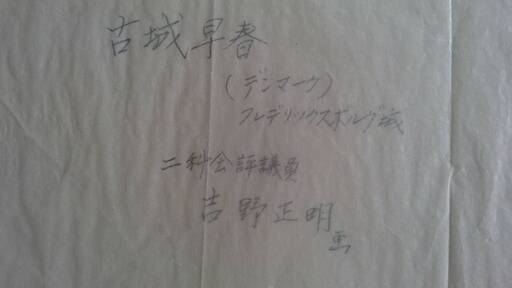 古城早春
(デンマーク)
フレデリックスボルグ城
二科会評議員
吉野正明
画